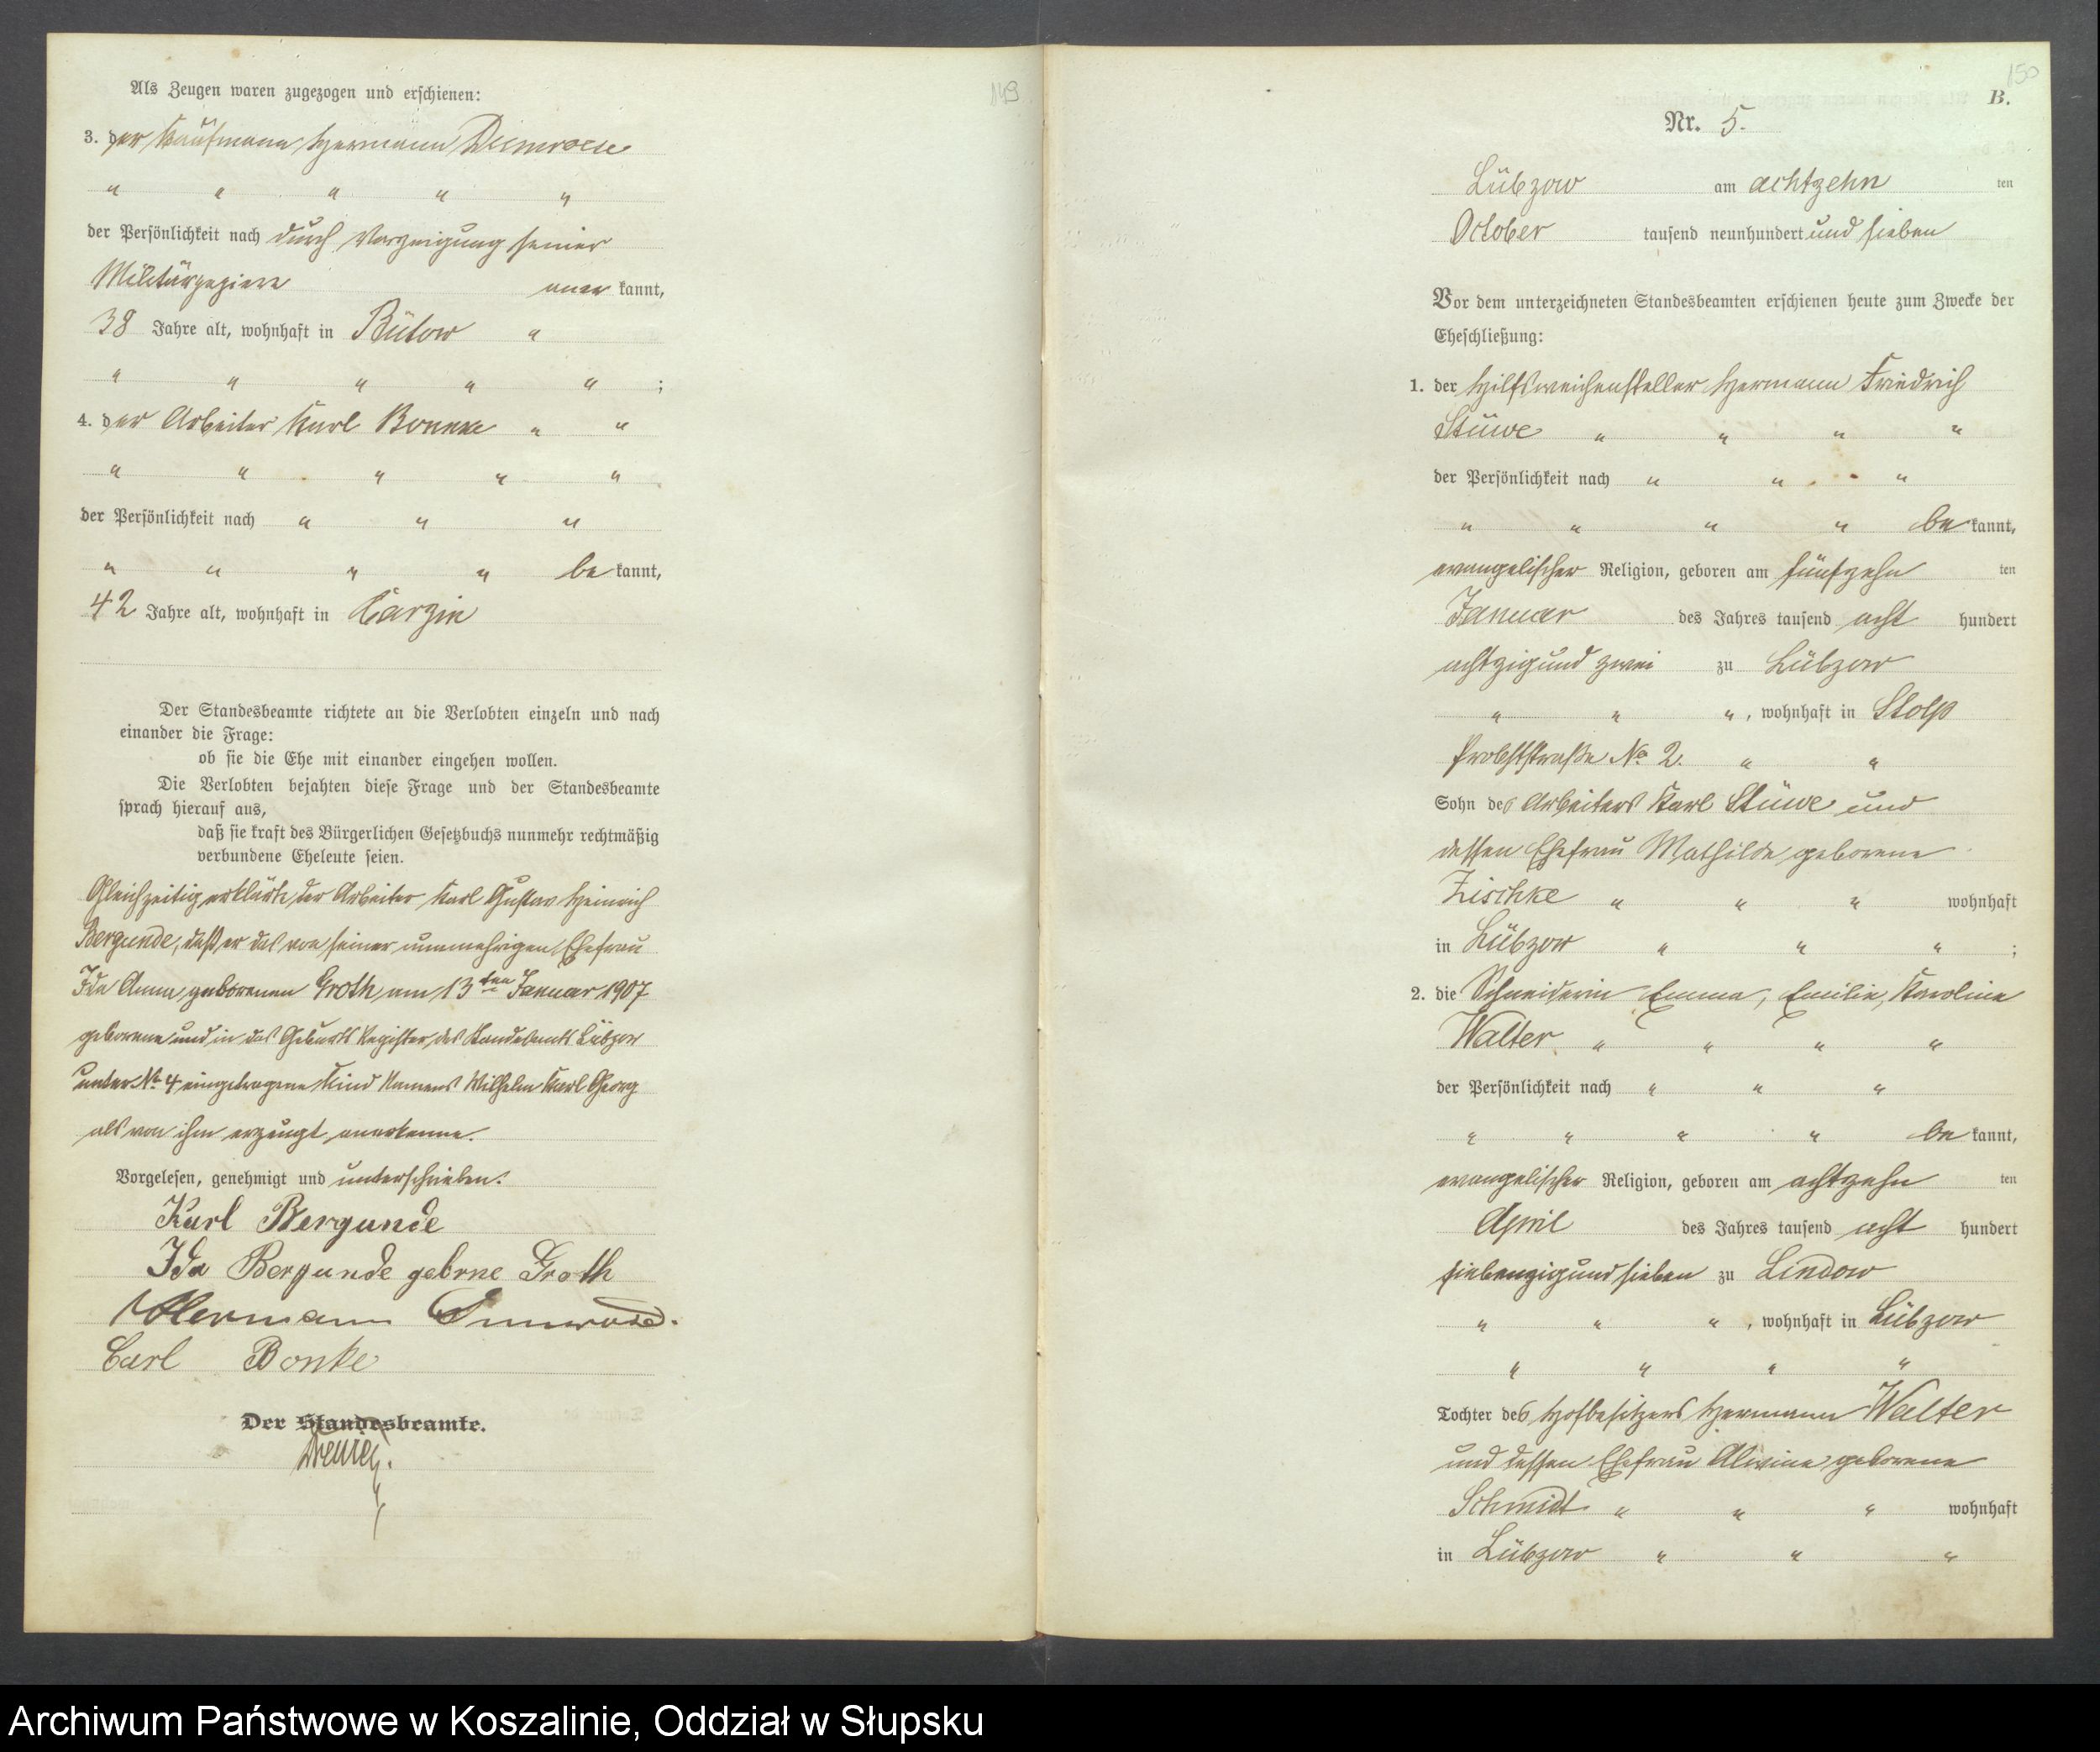 149
Als Zeugen waren zugezogen und erschienen:
3. der Kaufmann Hermann
" " " " "
der Persönlichkeit nach durch Vorzeigung seiner
Militärpapiere aner kannt,
38 Jahre alt, wohnhaft in Bütow "
" " " " " ;
4. der Arbeiter Karl Bonke " "
" " " " "
der Persönlichkeit nach " " "
" " " " be kannt,
42 Jahre alt, wohnhaft in Carzin
Der Standesbeamte richtete an die Verlobten einzeln und nach
einander die Frage:
ob sie die Ehe mit einander eingehen wollen.
Die Verlobten bejahten diese Frage und der Standesbeamte
sprach hierauf aus,
daß sie kraft des Bürgerlichen Gesetzbuchs nunmehr rechtmäßig
verbundene Eheleute seien.
Gleichzeitig erklärte der Arbeiter Karl Gustav Heinrich
Bergunde, daß er das von seiner nunmehrigen Ehefrau
Ida Anna, geborenen Groth, am 13ten Januar 1907
geborene und in das Geburts Register des Standesamts Lübzow
unter No 4 eingetragene Kind Namens Wilhelm Karl Georg
als von ihm erzeugt anerkenne.
Vorgelesen, genehmigt und unterschrieben.
Karl Bergunde
Ida Bergunde geborne Groth
Hermann
Carl Bonke
Der Standesbeamte.
150
B.
Nr. 5.
Lübzow am achtzehn ten
October tausend neunhundert und sieben
Vor dem unterzeichneten Standesbeamten erschienen heute zum Zwecke der
Eheschließung:
1. der Hilfsweichensteller Hermann Friedrich
Stüwe " " " "
der Persönlichkeit nach " " "
" " " " be kannt,
evangelischer Religion, geboren am fünfzehn ten
Januar des Jahres tausend acht hundert
achtzig und zwei zu Lübzow
" " ", wohnhaft in Stolp
Probststraße No 2. " "
Sohn des Arbeiters Karl Stüwe und
dessen Ehefrau Mathilde geborene
Zischke " " " wohnhaft
in Lübzow " " " ;
2. die Schneiderin Emma, Emilie, Karoline
Walter " " " "
der Persönlichkeit nach " " "
" " " " be kannt,
evangelischer Religion, geboren am achtzehn ten
April des Jahres tausend acht hundert
siebenzig und sieben zu Lindow
" " ", wohnhaft in Lübzow
" " " "
Tochter des Hofbesitzers Hermann Walter
und dessen Ehefrau Alwine geborene
Schmidt " " " wohnhaft
in Lübzow " " "
Archiwum Państwowe w Koszalinie, Oddział w Słupsku